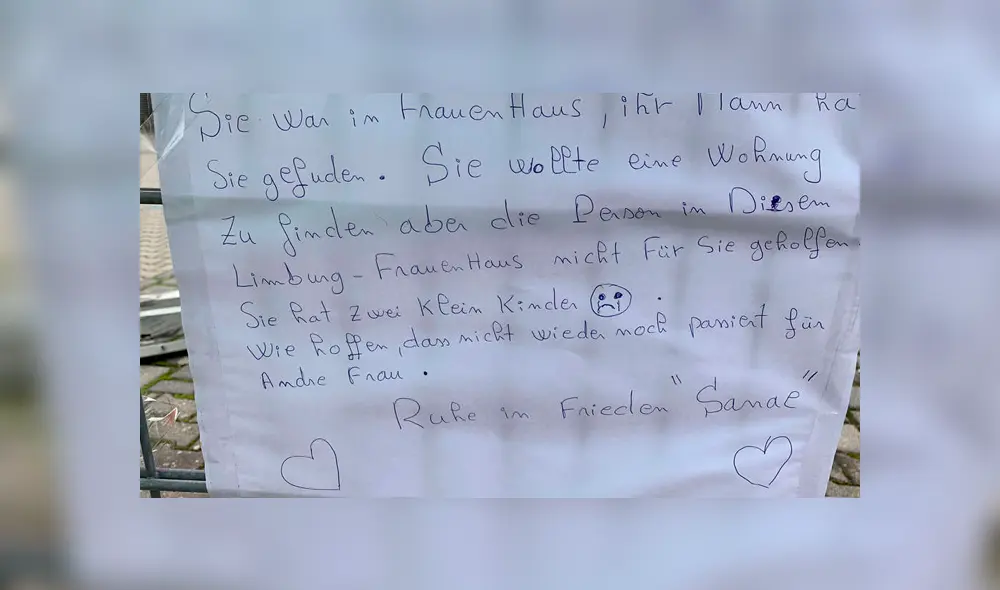 Sie war in FrauenHaus, ihr Mann ha
Sie gefuden. Sie wollte eine Wohnung
Zu finden aber die Person in Diesem
Limburg-FrauenHaus nicht Für Sie geholfen.
Sie hat zwei Klein Kinder .
Wie hoffen, dass nicht wieder noch passiert für
Andre Frau.
Ruhe in Frieden "Sanae"